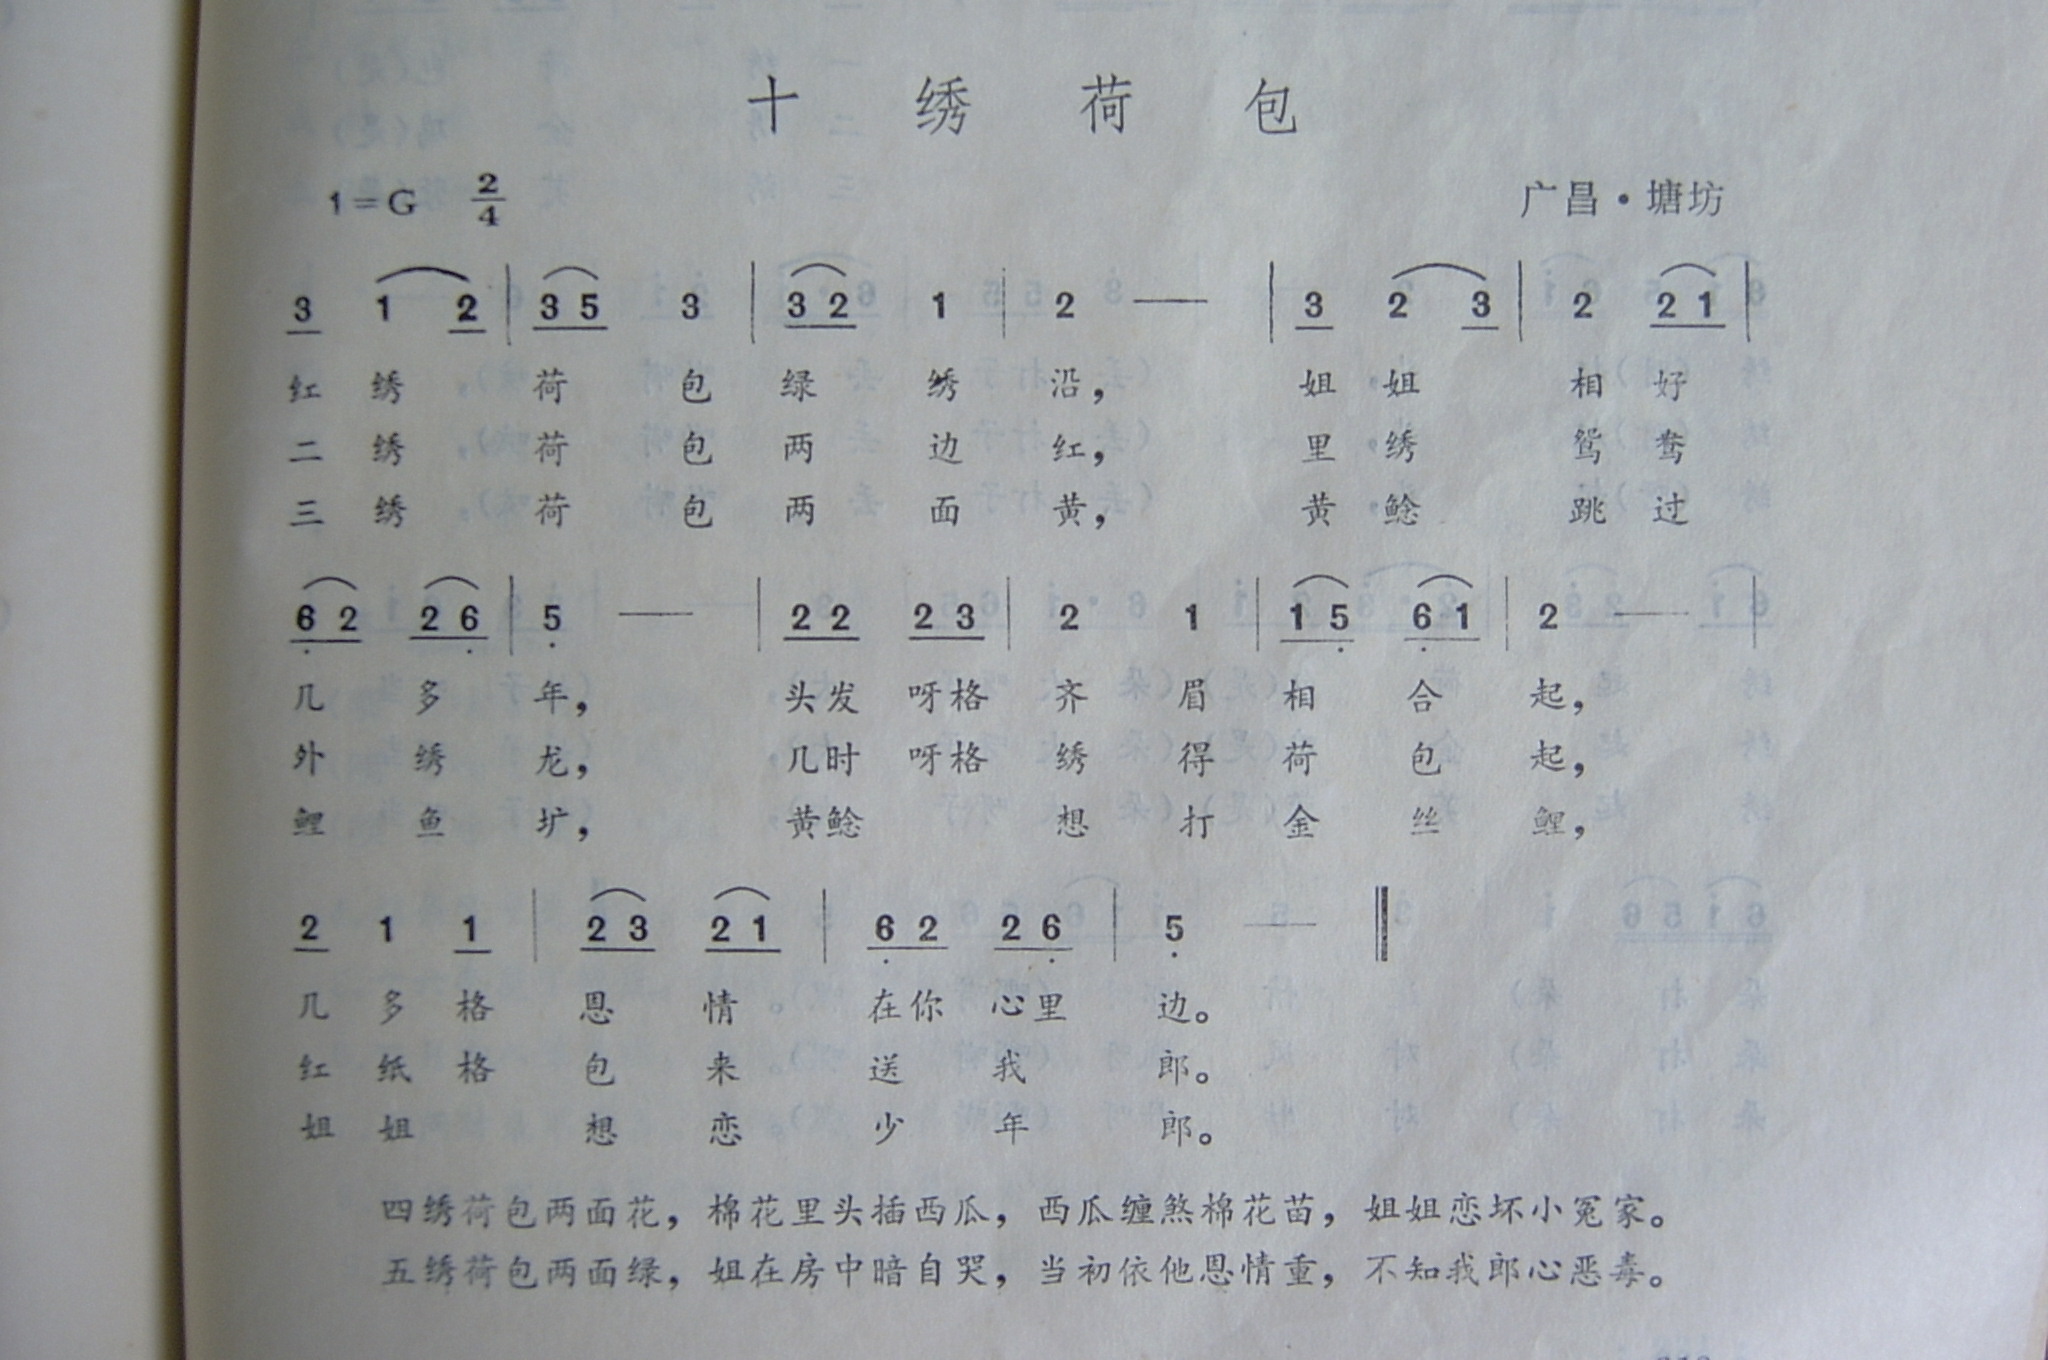 十绣荷包
1=G 2/4 广昌·塘坊
3 1 2 | 3 5 3 | 3 2 1 | 2 — | 3 2 3 | 2 2 1 |
红绣荷包绿绣沿，姐姐相好
二绣荷包两边红，里绣鸳鸯
三绣荷包两面黄，黄鲶跳过
6̣ 2 2 6̣ | 5̣ — | 2 2 2 3 | 2 1 | 1 5̣ 6̣ 1 | 2 — |
几多年，头发呀格齐眉相合起，
外绣龙，几时呀格绣得荷包起，
鲤鱼圹，黄鲶想打金丝鲤，
2 1 1 | 2 3 2 1 | 6̣ 2 2 6̣ | 5̣ — ‖
几多格恩情在你心里边。
红纸格包来送我郎。
姐姐想恋少年郎。
四绣荷包两面花，棉花里头插西瓜，西瓜缠煞棉花苗，姐姐恋坏小冤家。
五绣荷包两面绿，姐在房中暗自哭，当初依他恩情重，不知我郎心恶毒。